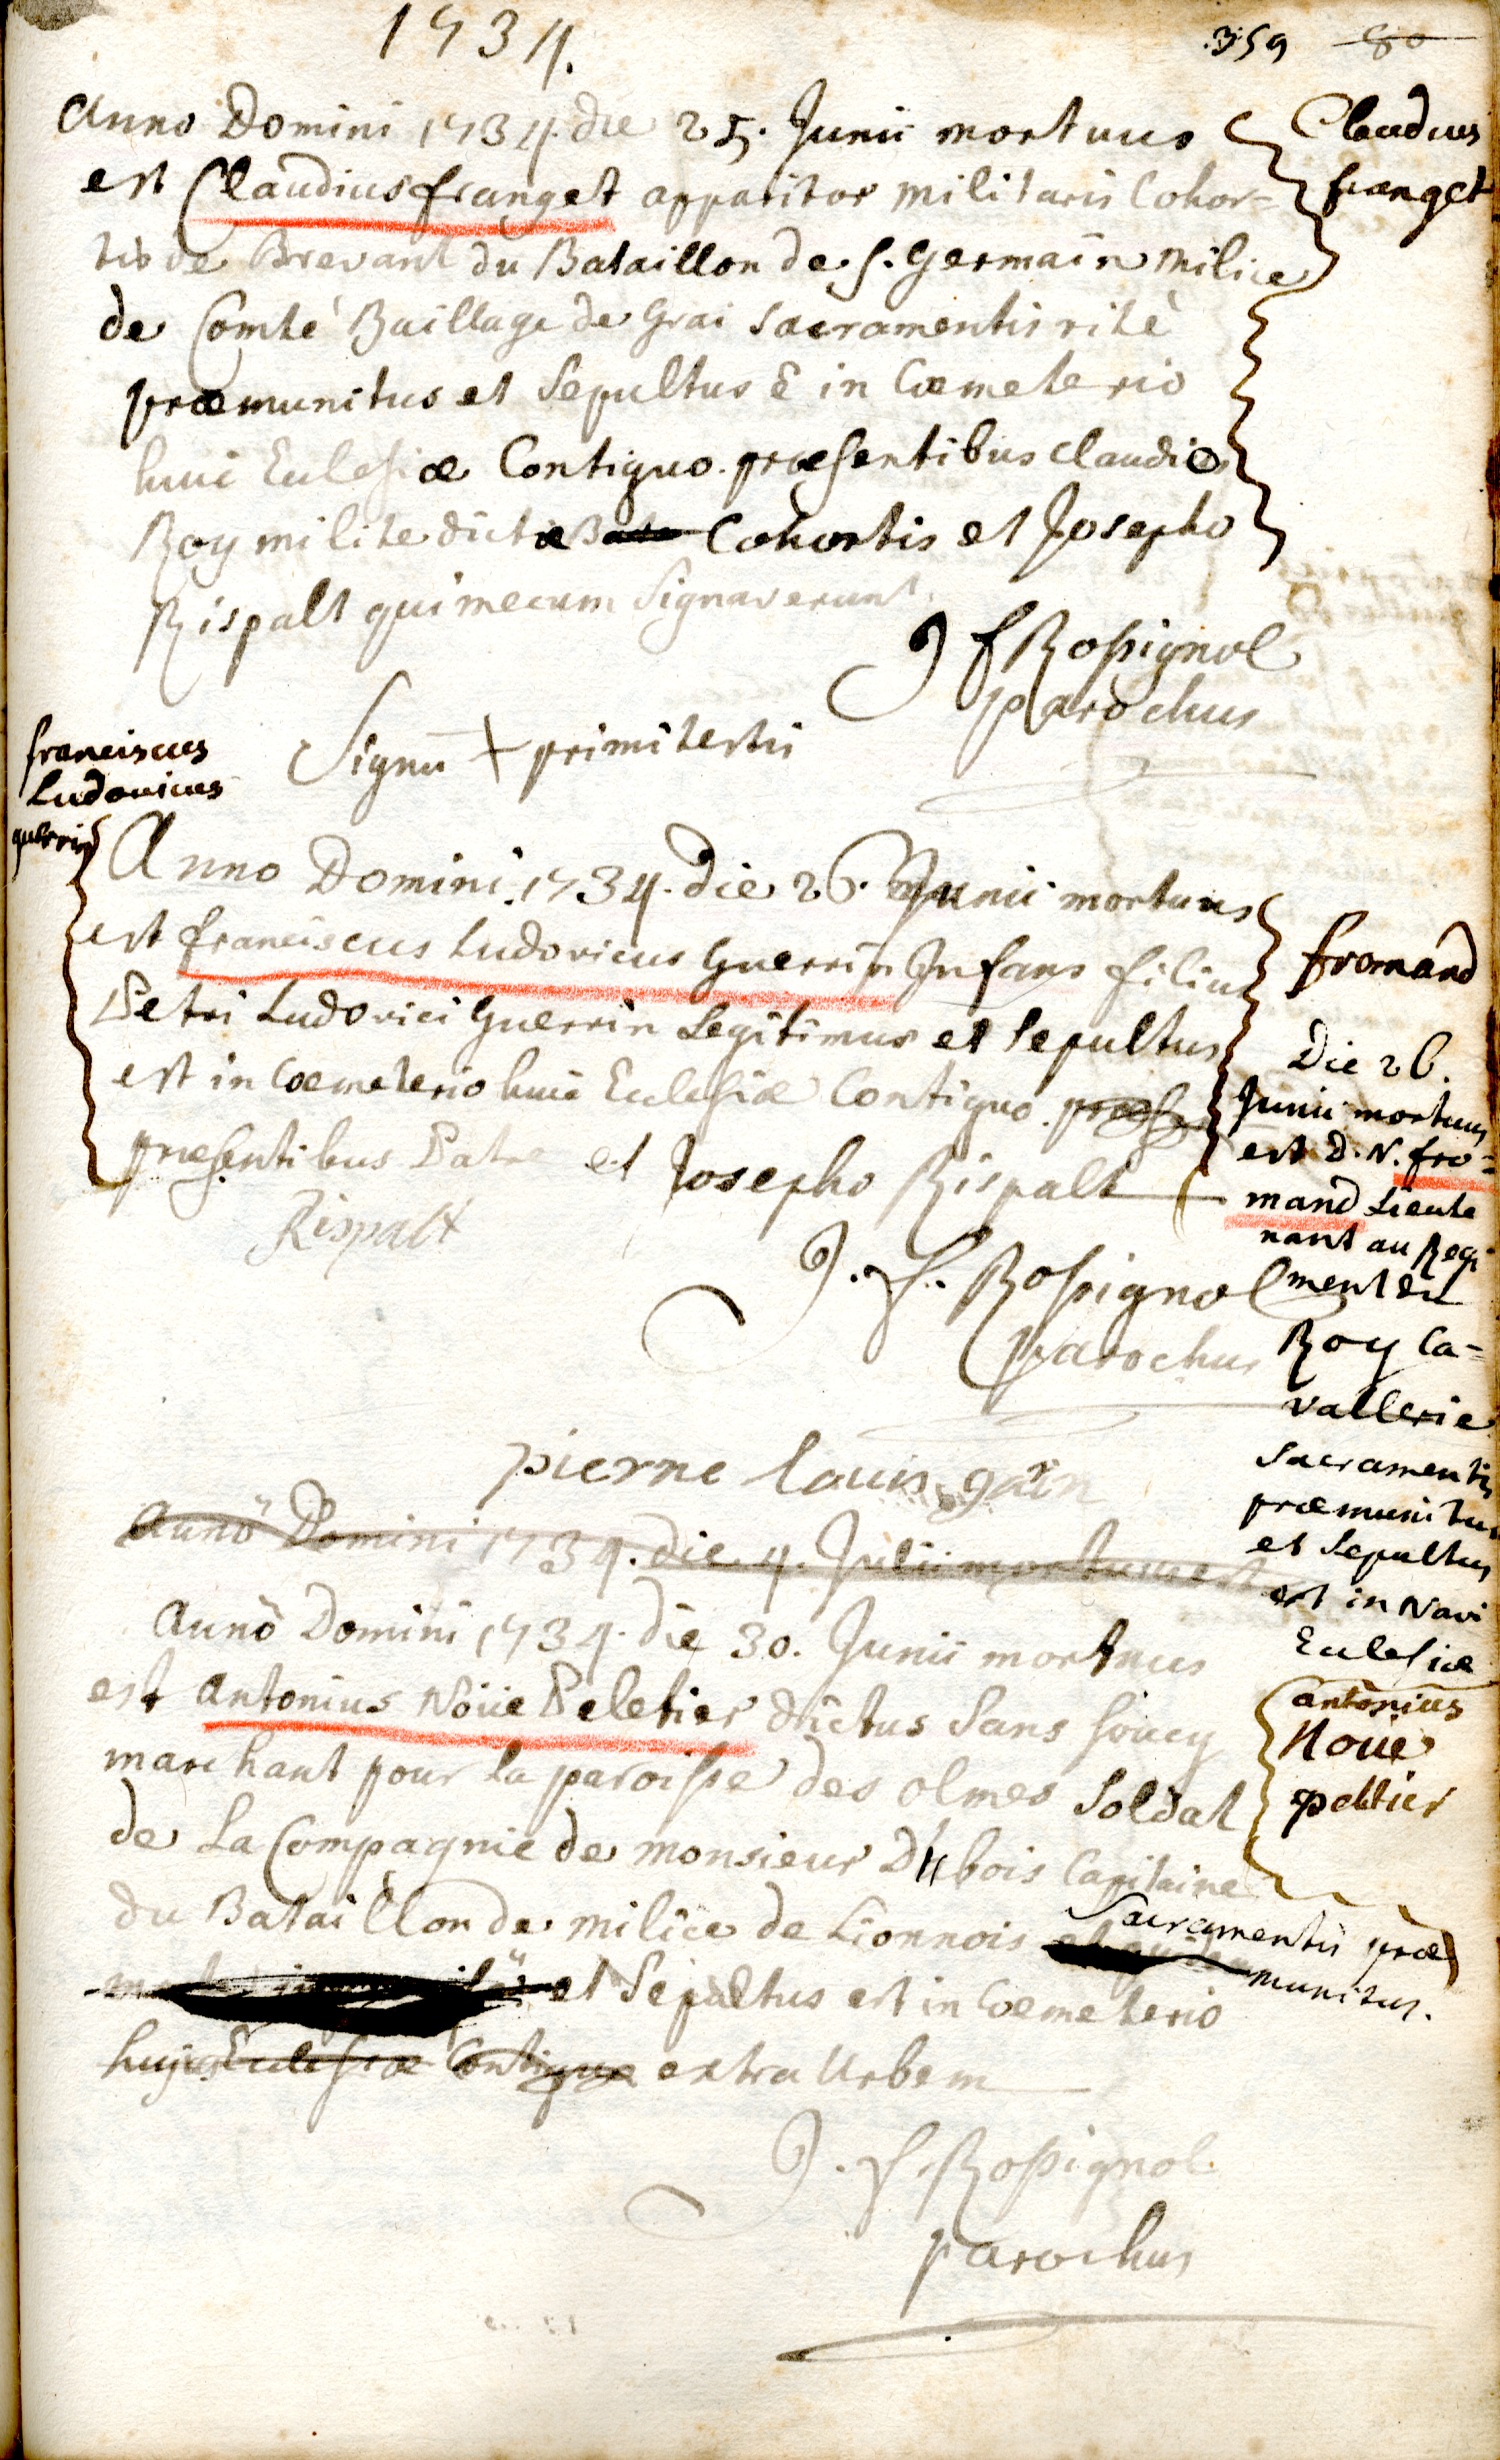 1734.
359 80
Anno Domini 1734. die 25. Junii mortuus
est Claudius franget apparitor militaris Cohor-
tis de Brevant du Bataillon de S. Germain milice
de Comté Baillage de Grai Sacramentis ritè
præmunitus et Sepultus ē in Cœmeterio
huic Eclesiæ Contiguo. præsentibus Claudio
Roy milite dictæ Cohortis et Josepho
Rispalt qui mecum Signaverunt.
J f Rossignol
parochus
Signū + primi testis
Claudius
franget
franciscus
Ludovicus
guerrin
Anno Domini 1734. die 26. Junii mortuus
est franciscus Ludovicus Guerrin Infans filius
Petri Ludovici Guerrin Legitimus et Sepultus
est in Cœmeterio huic Eclesiæ Contiguo. præse
præsentibus Patre et Josepho Rispalt
Rispalt
J. f. Rossignol
parochus
fromand
Die 26.
Junii mortuus
est D. N. fro=
mand Lieute
nant au Regi
ment du
Roy Ca=
vallerie
Sacramentis
præmunitus
et Sepultus
est in Navi
Eclesiæ
pierre louis garin
Anno Domini 1734. die 4. Julii mortuus est
Anno Domini 1734. die 30. Junii mortuus
est Antonius Noüe Peletier dictus Sans Soucy
marchant pour la paroisse des olmes Soldat
de La Compagnie de monsieur Dubois Capitaine
du Bataillon de milice de Lionnois Sacramentis præ
munitus.
et Sepultus est in Cœmeterio
hujus Eclesiæ Contiguo extra Urbem
J. f. Rossignol
parochus
antonius
Noüe
peltier